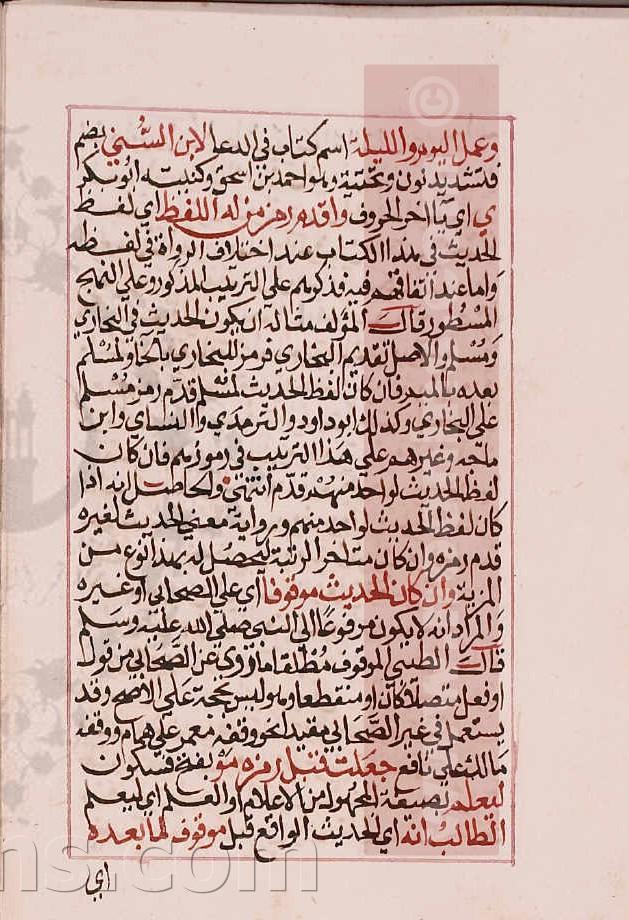 وعمل اليوم والليلة اسم كتاب في الدعا لابن السُّني بضم
فتشديد نون وتحتية وهو احمد بن اسحق وكنيته ابو بكر
ي اي يا اخر الحروف واقدم رمز من له اللفظ اي لفظ
الحديث في هذا الكتاب عند اختلاف الرواة في لفظه
واما عند اتفاقهم فيه فذكرهم على الترتيب المذكور وعلى النهج
المسطور قال المؤلف مثاله ان يكون الحديث في البخاري
ومسلم والاصل تقديم البخاري فرمز للبخاري بالخا ولمسلم
بعده بالميم فان كان لفظ الحديث لمسلم قدم رمز مسلم
على البخاري وكذلك ابو داود والترمذي والنساي وابن
ماجه وغيرهم على هذا الترتيب في رموزهم فان كان
لفظ الحديث لواحد منهم قدم انتهى والحاصل انه اذا
كان لفظ الحديث لواحد منهم ورواية معنى الحديث لغيره
قدم رمزه وان كان متاخر الرتبة ليحصل له بهذا نوع من
المزية وان كان الحديث موقوفا اي على الصحابي او غيره
والمراد انه لا يكون مرفوعا الى النبي صلى الله عليه وسلم
قال الطيبي الموقوف مطلقا ما روي عن الصحابي من قول
او فعل متصلا كان او منقطعا وهو ليس بحجة على الاصح وقد
يستعمل في غير الصحابي مقيدا نحو وقفه معمر على همام ووقفه
مالك على نافع جعلت قبل رمزه مو بفتح فسكون
ليعلم بصيغة المجهول من الاعلام او العلم اي ليعلم
الطالب انه اي الحديث الواقع قبل موقوف لما بعده
اي
ns.com